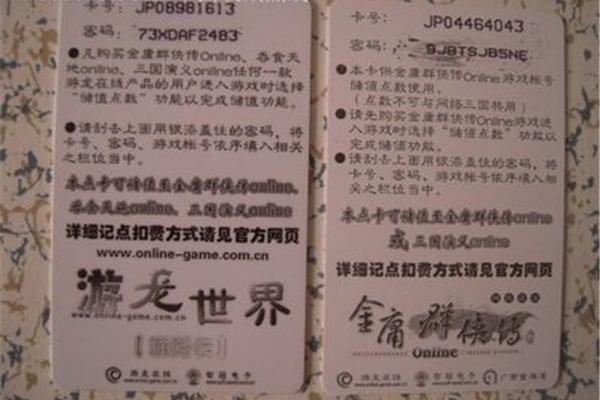 卡号: JP08981613
密码: 73XDAF2483
●凡购买金庸群侠传Online、吞食天
地online、三国演义online任何一款
游龙在线产品的用户进入游戏时选择
“储值点数”功能以完成储值功能。
●请刮去上面用银漆盖住的密码，将
卡号、密码、游戏帐号依序填入相关
之栏位当中。
本点卡可储值至金庸群侠传online、
吞食天地online、三国演义online
详细记点扣费方式请见官方网页
www.online-game.com.cn
游龙世界
www.online-game.com.cn
游龙在线
智冠电子
卡号: JP04464043
密码: 9J8TSJB5NE
●本卡供金庸群侠传Online游戏帐号
储值点数使用。
(点数不可与网络三国共用)
●请先购买金庸群侠传Online游戏进
入游戏时选择“储值点数”功能以
完成储值功能。
●请刮去上面用银漆盖住的密码，将
卡号、密码、游戏帐号依序填入相关
之栏位当中。
本点卡可储值至金庸群侠传online
或三国演义online
详细记点扣费方式请见官方网页
金庸群侠传
Online
游龙在线
智冠电子